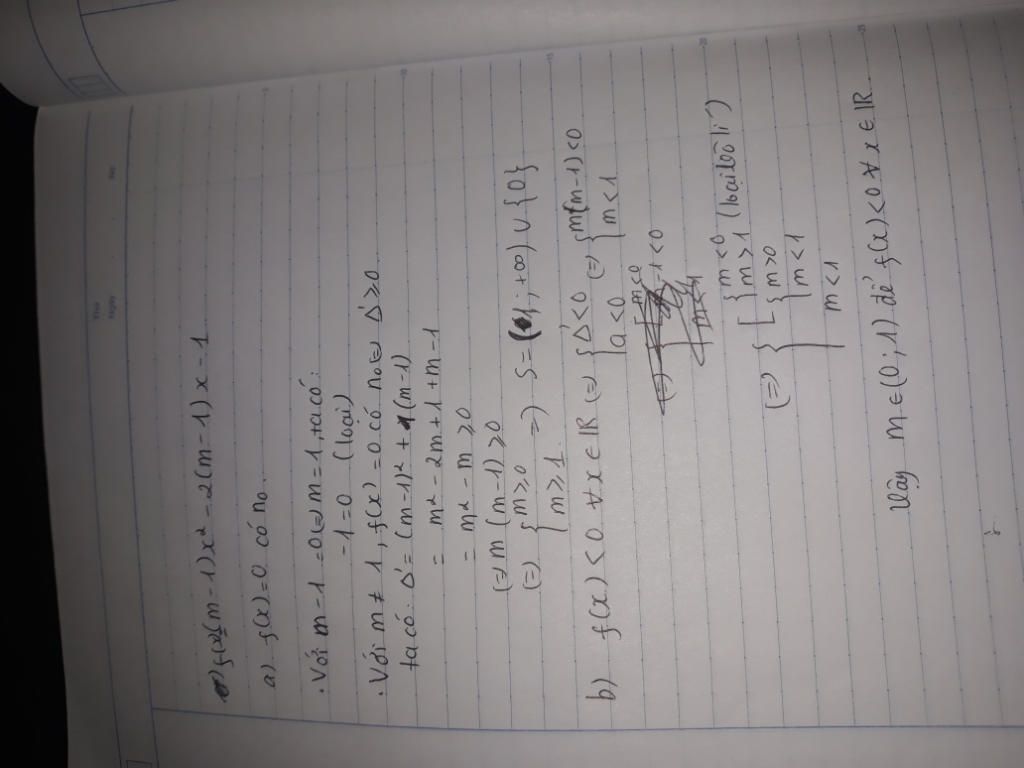 f(x)=(m-1)x² - 2(m-1)x - 1
a) f(x)=0 có no
. Với m-1=0 (=) m=1, ta có:
-1=0 (loại)
. Với m≠1, f(x)=0 có no (=) Δ'≥0
ta có: Δ'= (m-1)² + 1(m-1)
= m² - 2m+1+m-1
= m² - m ≥0
(=) m(m-1)≥0
(=) { m≥0 m≥1 =) S = (1; +∞) ∪ {0}
b) f(x)<0 ∀x∈ℝ (=) { Δ'<0 a<0 (=) { m(m-1)<0 m<1
(=) { [ { m<0 m>1 (loại vô lí) { m>0 m<1 m<1
Vậy m∈(0;1) để f(x)<0 ∀x∈ℝ